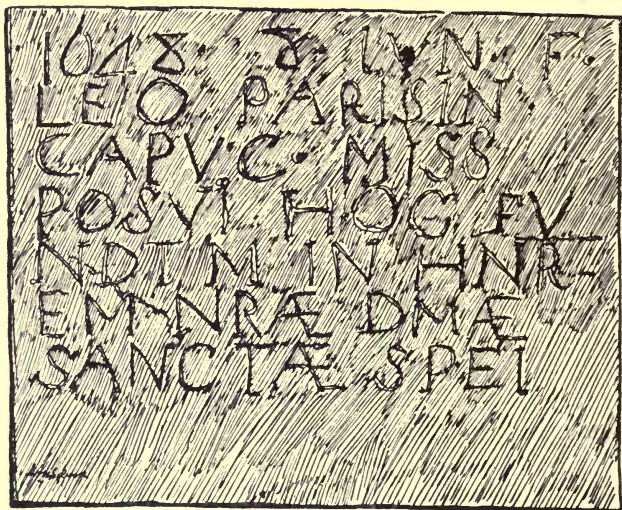 1648 8 IVN. F.
LEO PARISIN
CAPVC. MISS
POSVI HOC FV
NDTM IN HNR-
EM NRÆ DMÆ
SANCTÆ SPEI